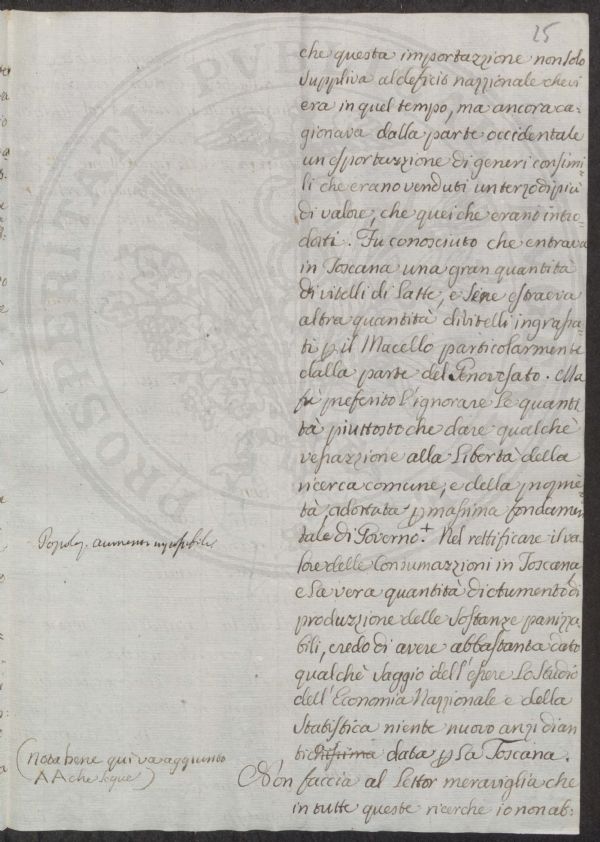 25
che questa importazzione non solo
suppliva al deficio nazzionale che vi
era in quel tempo, ma ancora ca-
gionava dalla parte occidentale
un esportazzione di generi consimi-
li che erano venduti un terzo di più
di valore, che quei che erano intro-
dotti. Fu conosciuto che entrava
in Toscana una gran quantità
di vitelli di Latte, e se ne estraeva
altra quantità di vitelli ingrassa-
ti p il Macello particolarmente
dalla parte del Genovesato. Ma
fù preferito l'ignorare le quanti
tà piuttosto che dare qualchè
vessazzione alla Libertà della
ricerca comune, e della proprie-
tà, adottata p massima fondamen
tale di Governo.+ Nel rettificare il va-
lore delle Consumazzioni in Toscana,
e la vera quantità di
produzzione delle Sostanze panizza-
bili, credo di avere abbastanta dato
qualchè saggio dell'essere lo Studio
dell'Economia Nazzionale e della
Statistica niente nuovo anzi di an
ti data p la Toscana.
Non faccia al Lettor meraviglia che
in tutte queste ricerche io non ab-
aumento
(Nota bene qui va aggiunto
AA che segue)
PROSPERITATI PUB